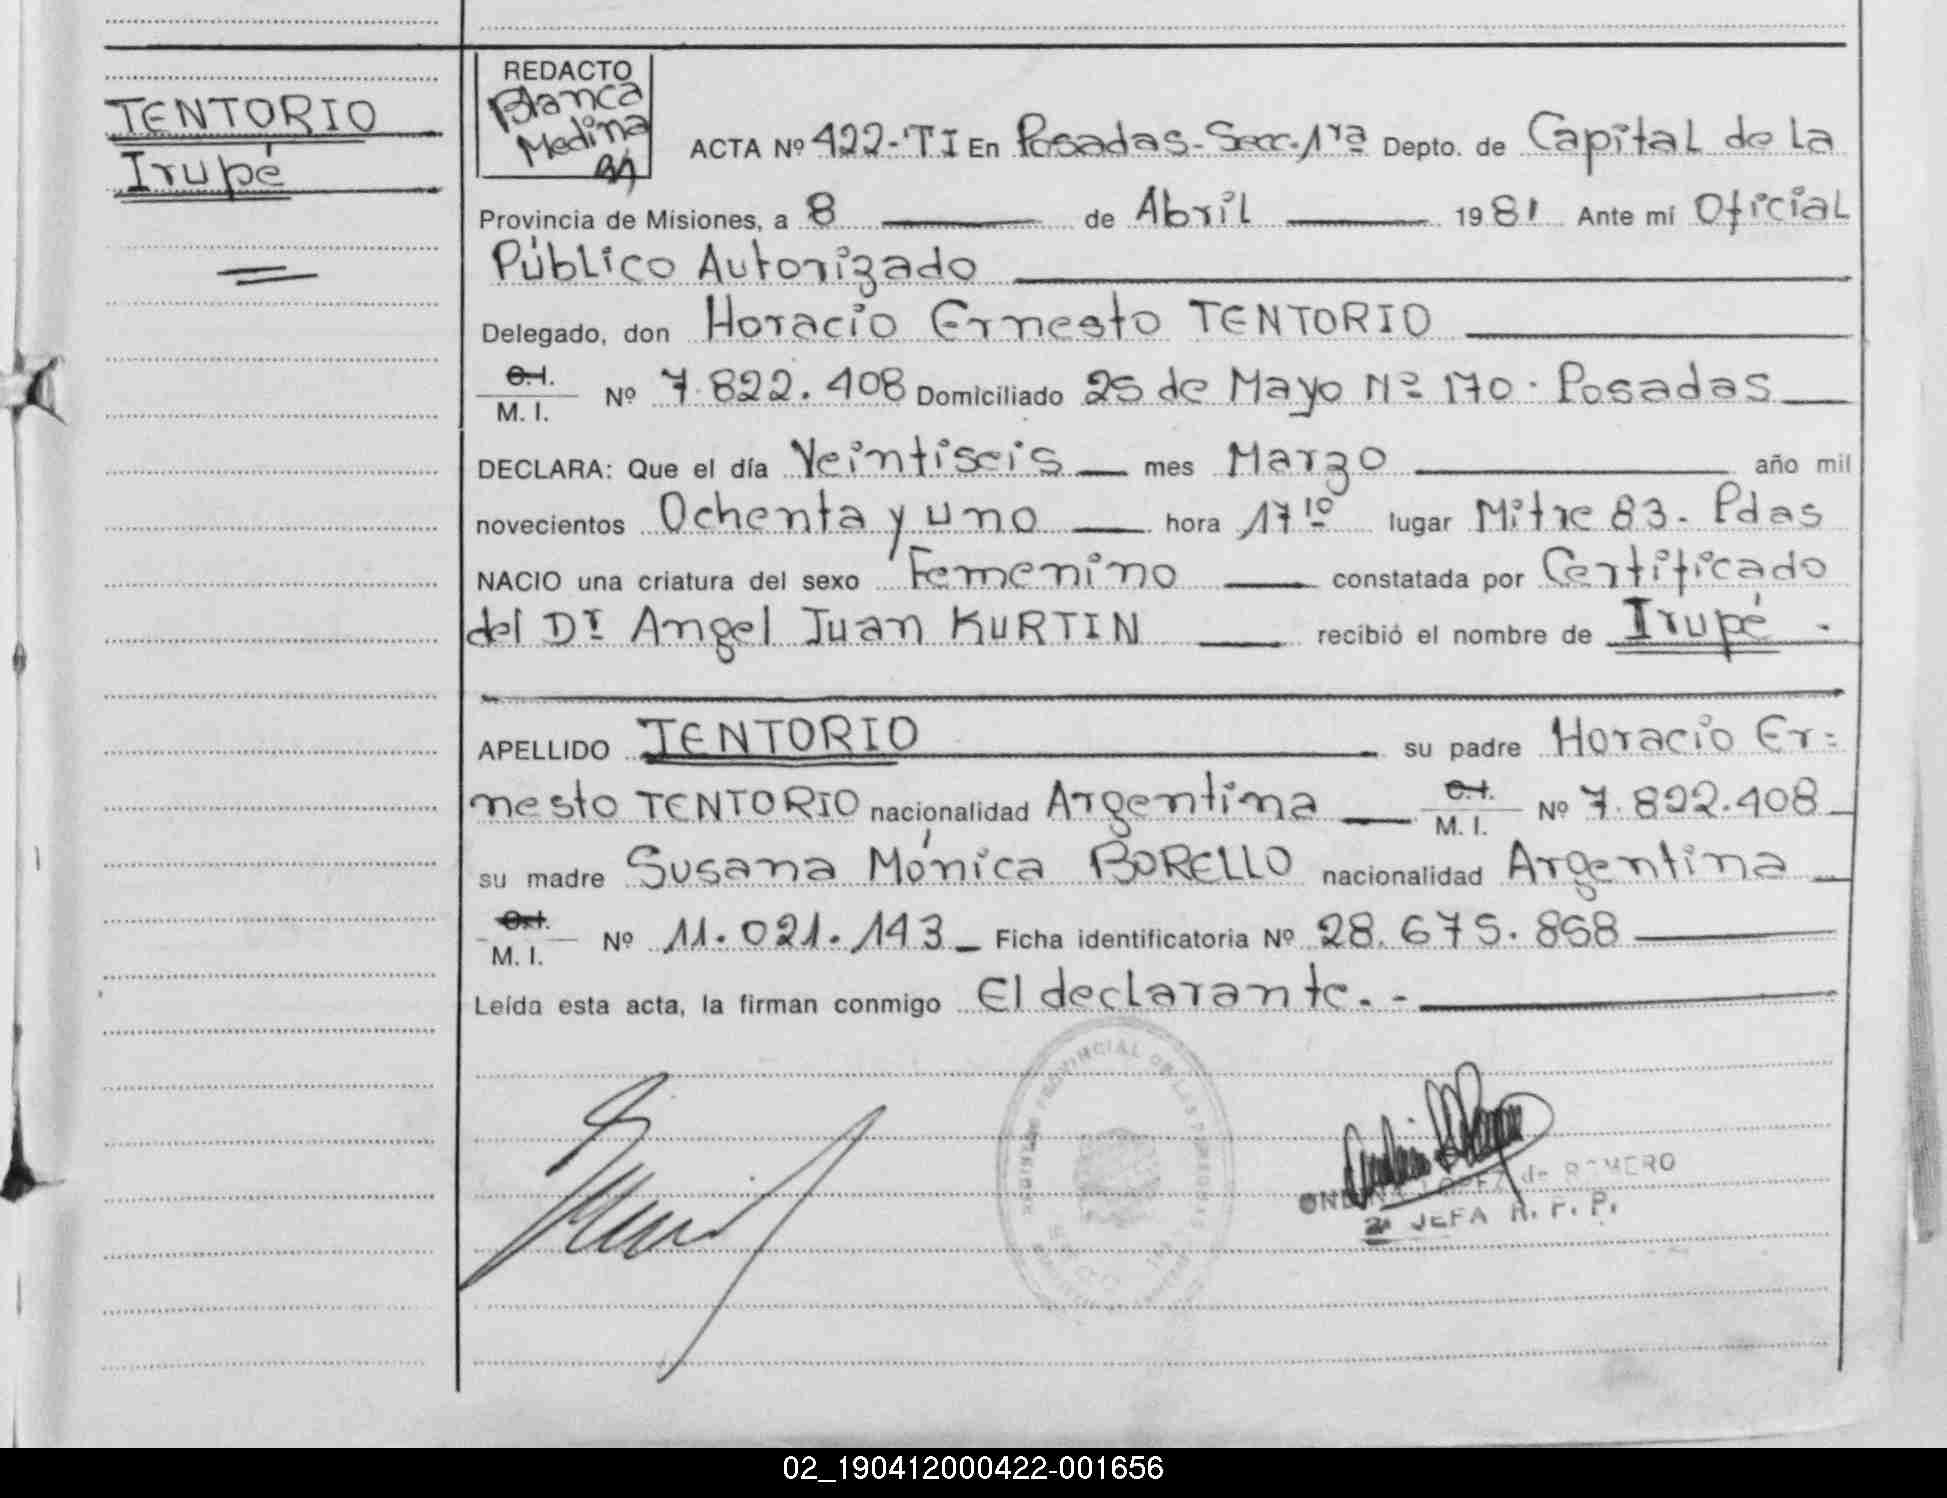 TENTORIO
Irupé
REDACTO
Blanca
Medina
ACTA Nº 422-TI En Posadas-Secc.1ra Depto. de Capital de La
Provincia de Misiones, a 8 de Abril 1981 Ante mí Oficial
Público Autorizado
Delegado, don Horacio Ernesto TENTORIO
C.I.
M. I. Nº 7.822.408 Domiciliado 25 de Mayo Nº 170. Posadas
DECLARA: Que el día Veintiseis mes Marzo año mil
novecientos Ochenta y uno hora 17 10 lugar Mitre 83. Pdas
NACIO una criatura del sexo Femenino constatada por Certificado
del Dr Angel Juan KURTIN recibió el nombre de Irupé.
APELLIDO TENTORIO su padre Horacio Er=
nesto TENTORIO nacionalidad Argentina C.I. M. I. Nº 7.822.408
su madre Susana Mónica BORELLO nacionalidad Argentina
C.I.
M. I. Nº 11.021.143 Ficha identificatoria Nº 28.675.868
Leída esta acta, la firman conmigo El declarante.-
PROVINCIAL DE LAS PERSONAS
LOPEZ de ROMERO
JEFA R. P. P.
02_190412000422-001656